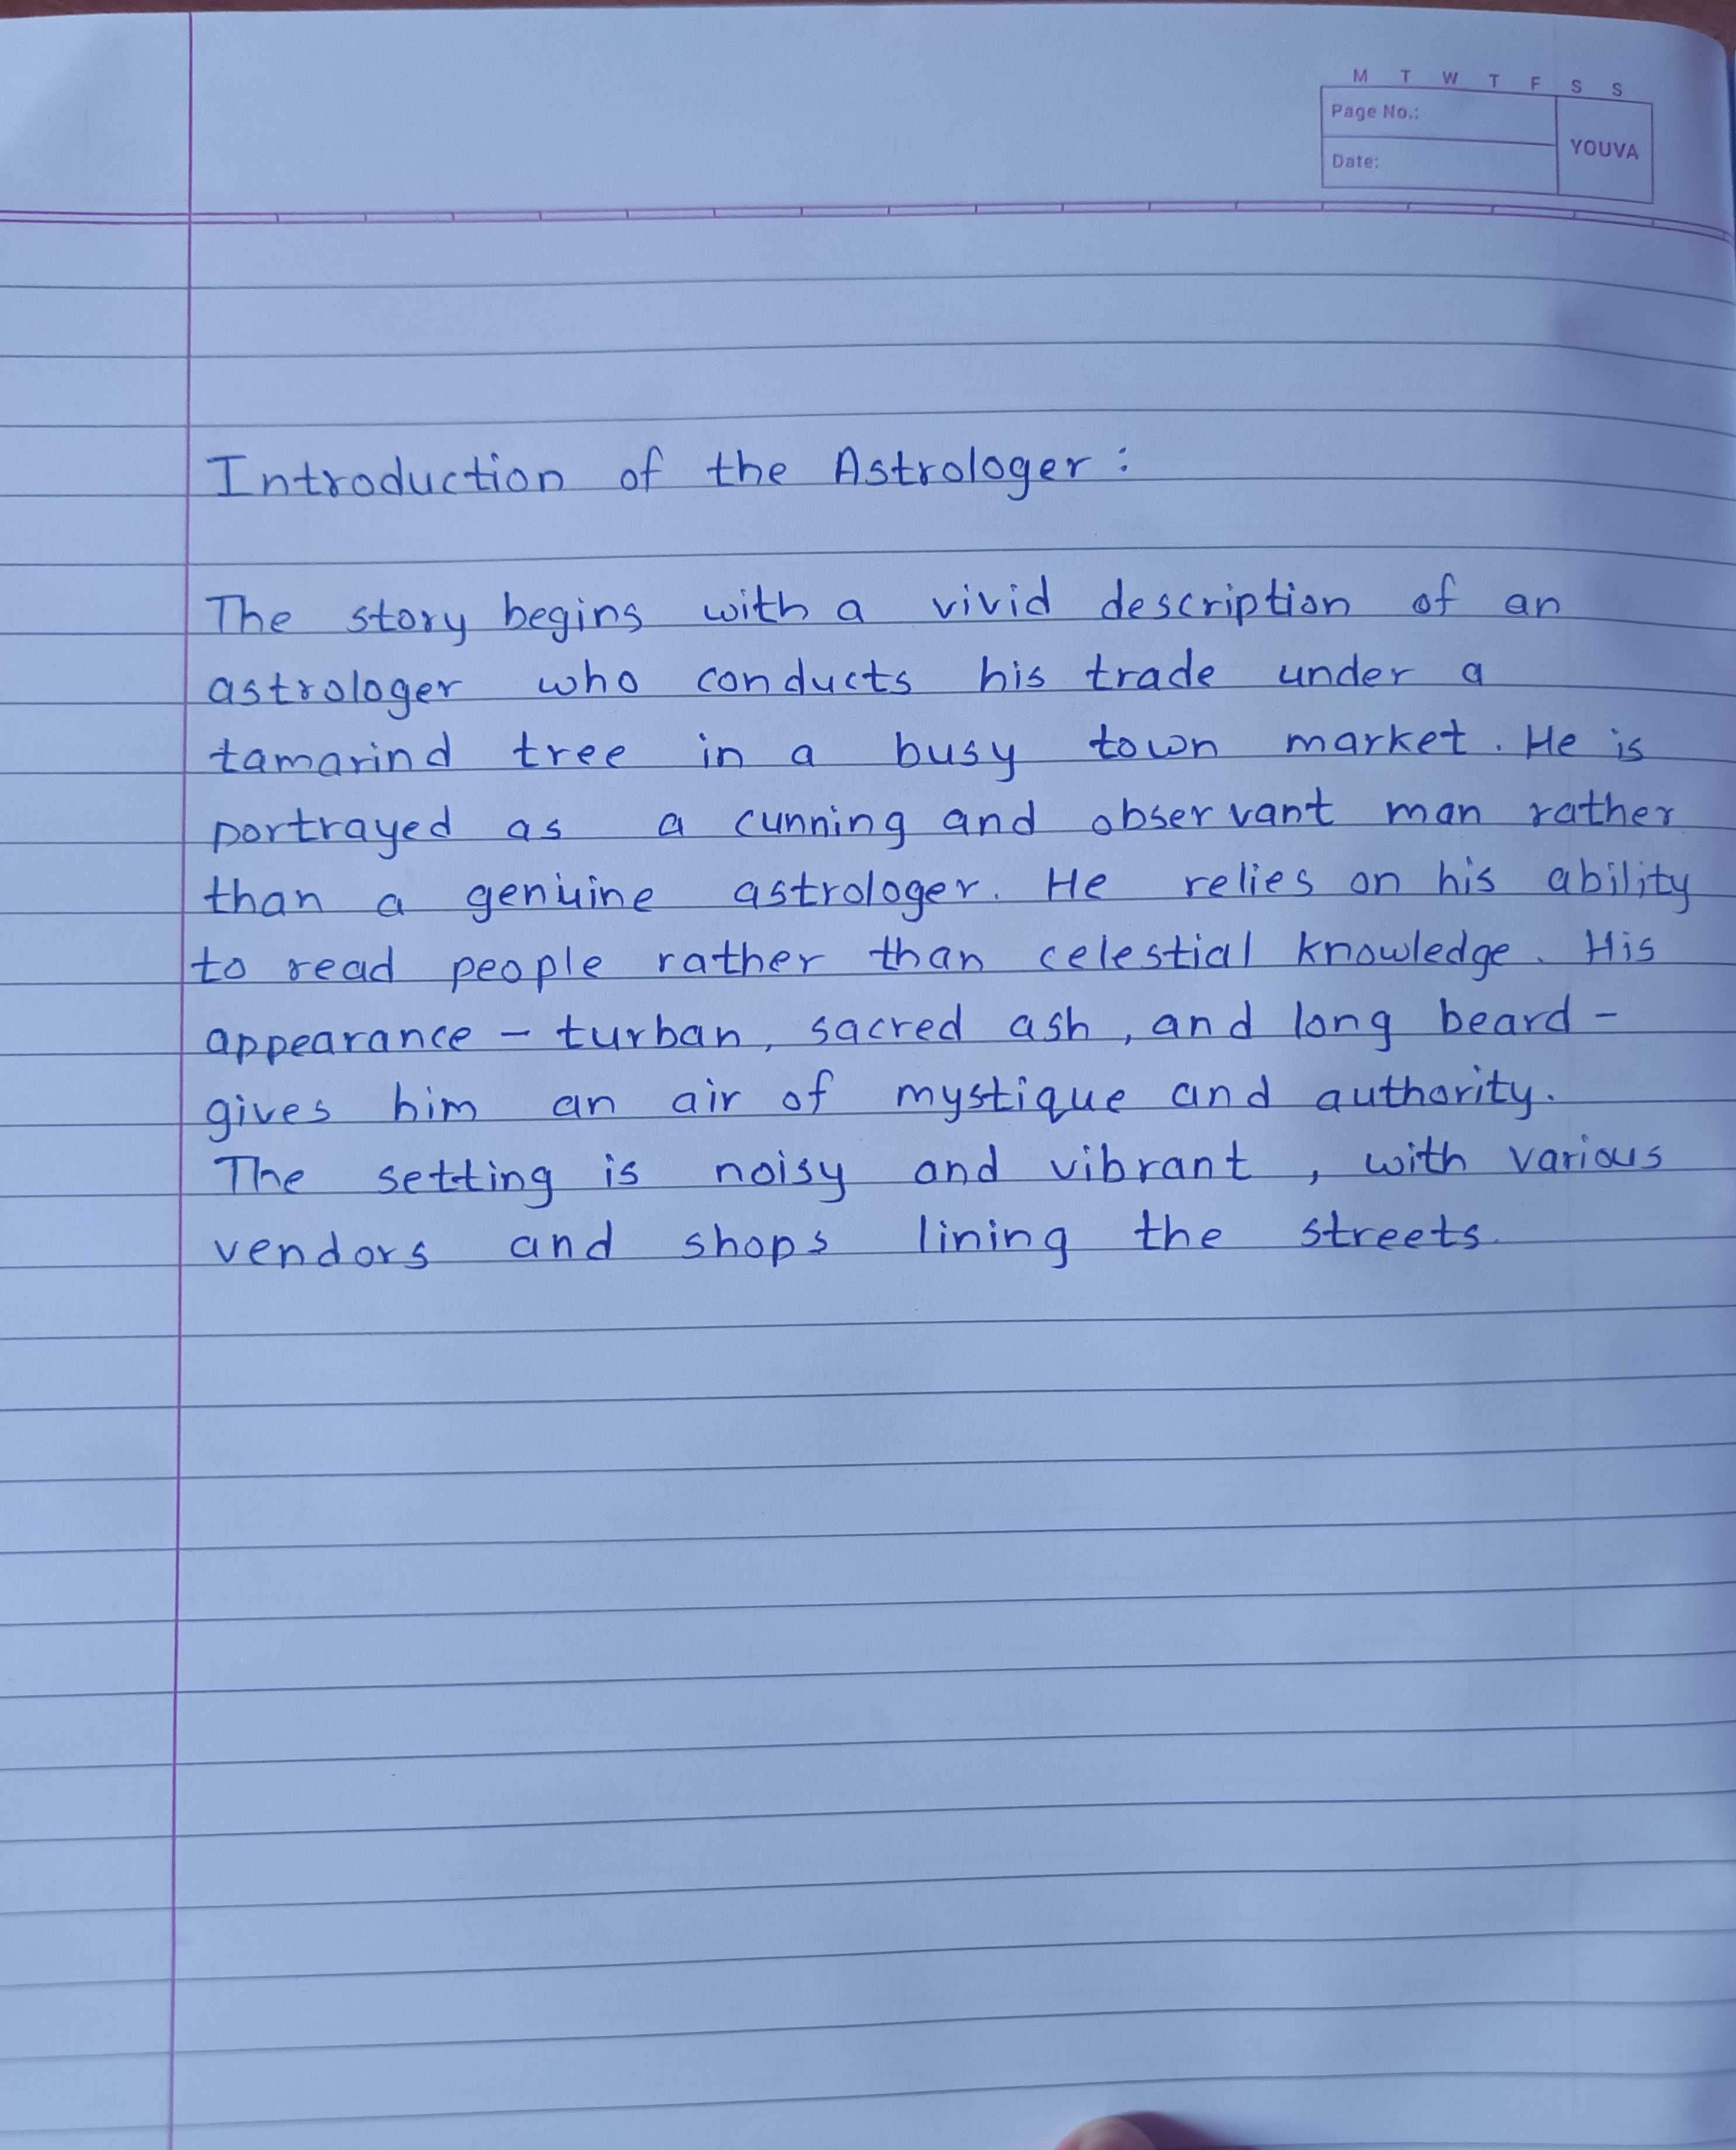 M T W T F S S
Page No.:
YOUVA
Date:
Introduction of the Astrologer :
The story begins with a vivid description of an
astrologer who conducts his trade under a
tamarind tree in a busy town market. He is
portrayed as a cunning and observant man rather
than a genuine astrologer. He relies on his ability
to read people rather than celestial knowledge. His
appearance – turban, sacred ash, and long beard –
gives him an air of mystique and authority.
The setting is noisy and vibrant, with various
vendors and shops lining the streets.